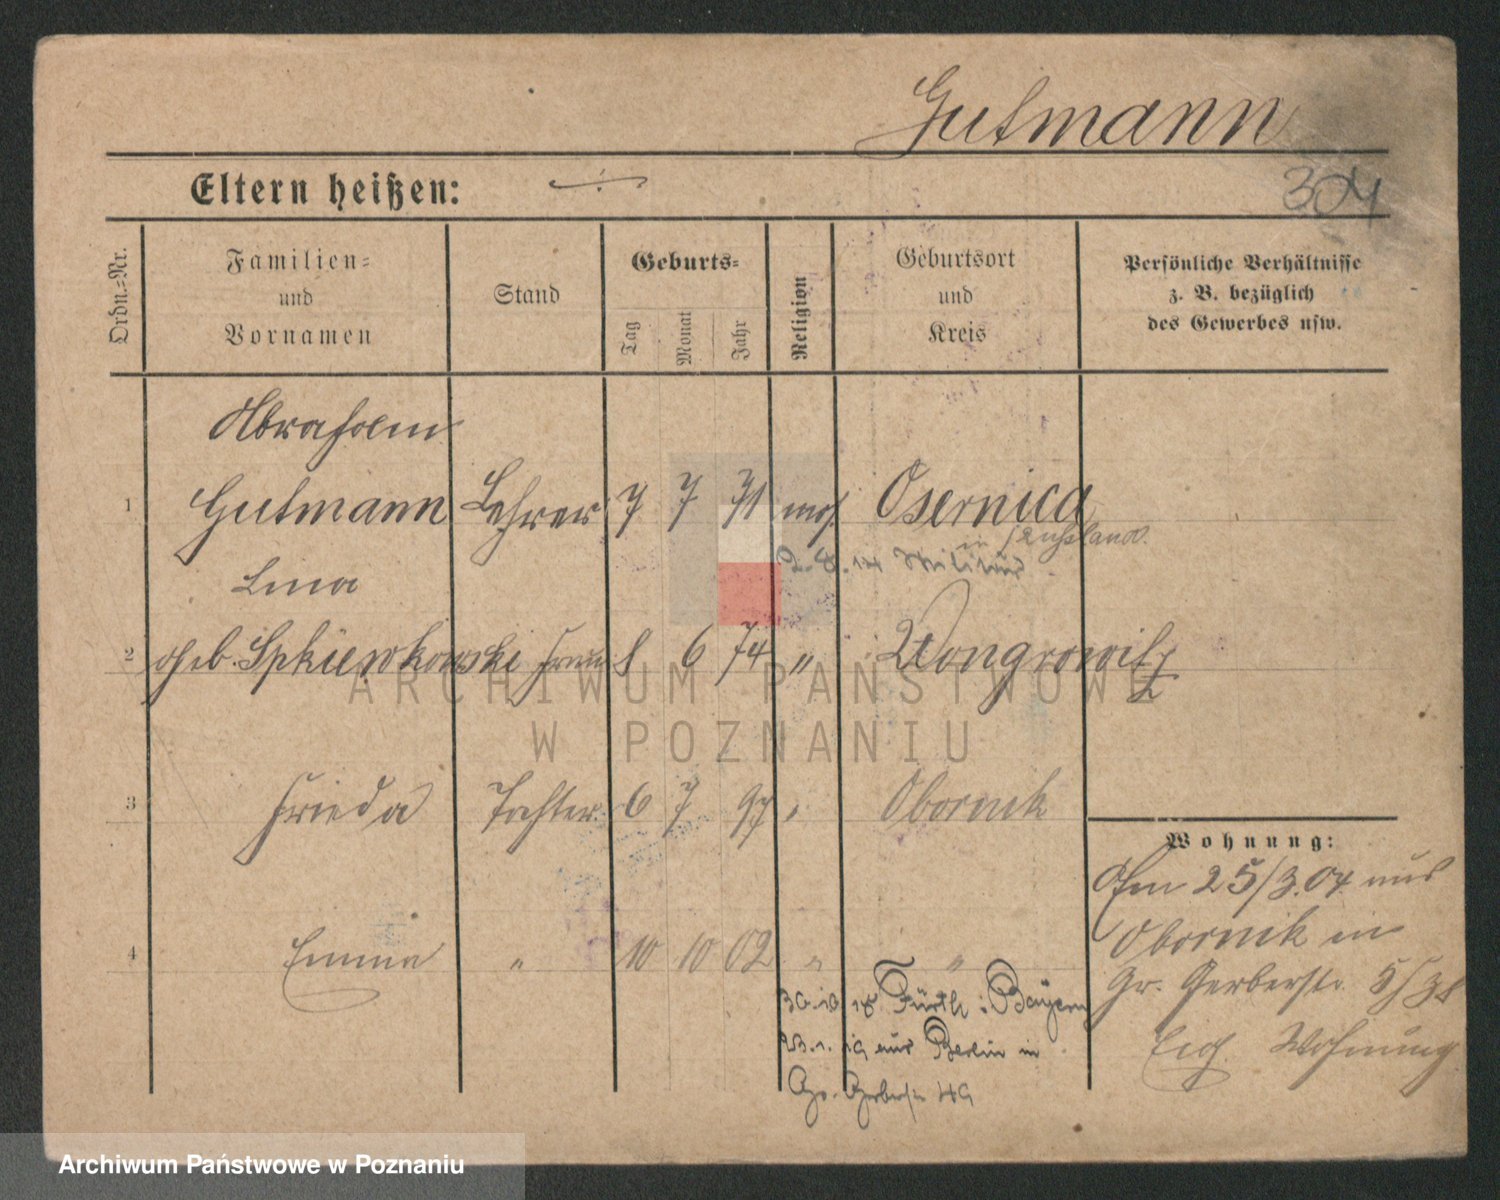 Gutmann
Eltern heißen: ÷
304
Ordn.=Nr.
Familien=
und
Vornamen
Stand
Geburts=
Tag
Monat
Jahr
Religion
Geburtsort
und
Kreis
Persönliche Verhältnisse
z. B. bezüglich
des Gewerbes usw.
Abraham
1 Gutmann Lehrer 7 7 71 mos. Osernica
in Russland.
2. 8. 14 Militär
Lina
2 geb. Frau 8 6 74 " Wongrowitz
3 Frieda Tochter 6 7 97 " Obornik
4 Emma " 10 10 02 " "
30.10.18. Fürth i. Bayern
23.1.19 aus Berlin in
Gr. Gerberstr 49
Wohnung:
25/3.04 aus
Obornik in
Gr. Gerberstr. 5/38
Eig. Wohnung
ARCHIWUM PAŃSTWOWE
W POZNANIU
Archiwum Państwowe w Poznaniu